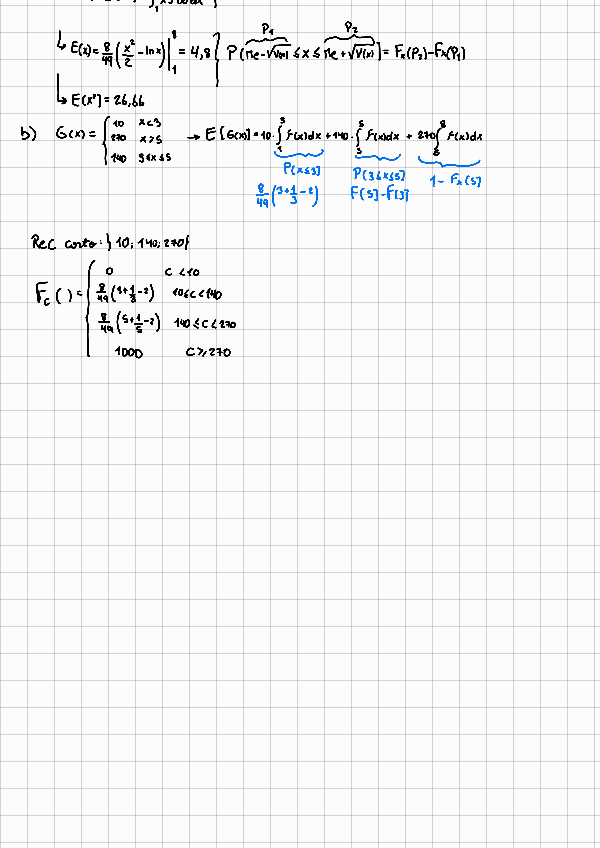 E(x)=8/49 (x²/2 - ln x)|₁⁸ = 4,8 } P(Me-√V(x) ≤ x ≤ Me+√V(x)]= Fₓ(P₂)-Fₓ(P₁)
P₁ P₂
E(x²)=26,66
b) G(x) = { 10 x<3
270 x>5
140 3≤x≤5
→ E[G(x)]=10·∫₁³ f(x)dx +140·∫₃⁵ f(x)dx + 270∫₅⁸ f(x)dx
P(x≤3) P(3≤x≤5) 1- Fₓ(5)
8/49 (3+1/3-2) F(5)-F(3)
Rec costo: } 10; 140; 270}
F_c ( ) = { 0 C<10
8/49 (3+1/3-2) 10≤C<140
8/49 (5+1/5-2) 140≤C<270
1000 C≥270